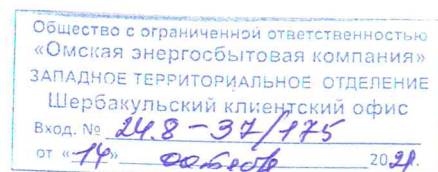 Общество с ограниченной ответственностью
«Омская энергосбытовая компания»
ЗАПАДНОЕ ТЕРРИТОРИАЛЬНОЕ ОТДЕЛЕНИЕ
Шербакульский клиентский офис
Вход. № 24.8-37/175
от «14» 2021.